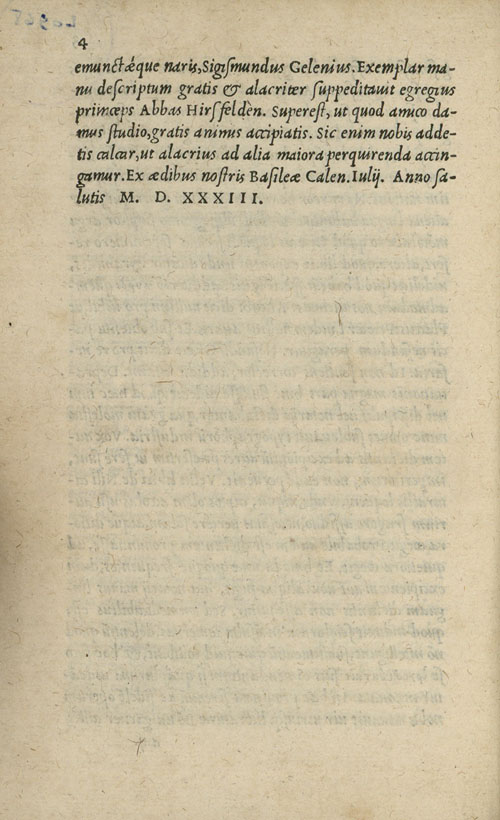 4
emunctǽque naris, Sigismundus Gelenius. Exemplar ma-
nu descriptum gratis & alacriter suppeditauit egregius
princeps Abbas Hirsfelden. Superest, ut quod amico da-
mus studio, gratis animus accipiatis. Sic enim nobis adde-
tis calcar, ut alacrius ad alia maiora perquirenda accin-
gamur. Ex ædibus nostris Basileæ Calen. Iulij. Anno sa-
lutis M. D. XXXIII.